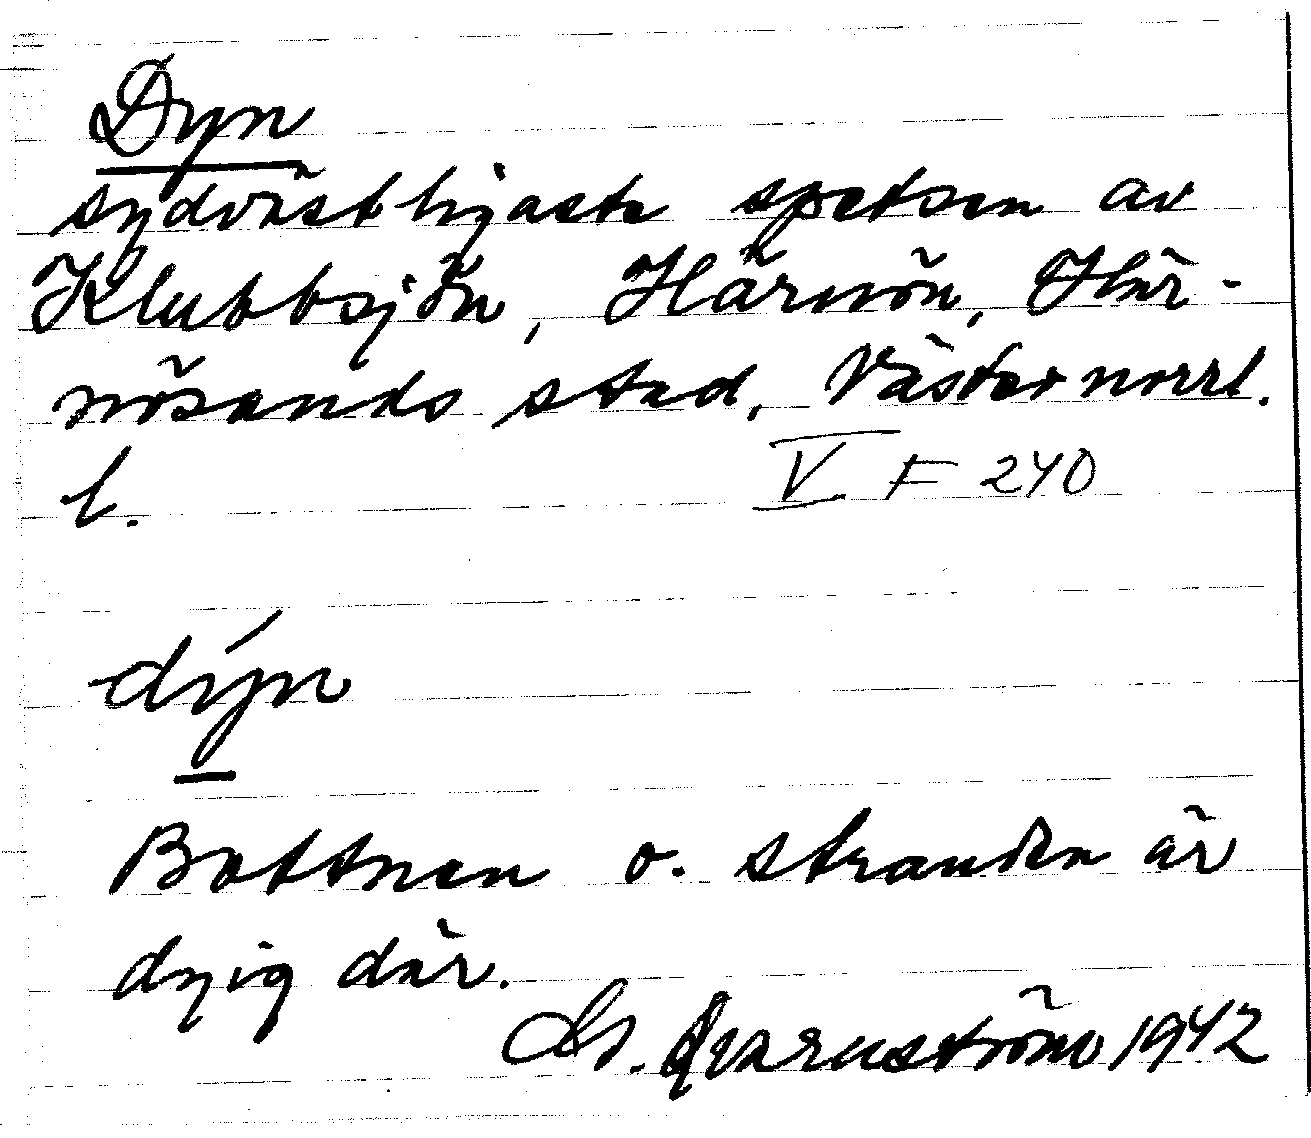 Dyn
sydvästligaste spetsen av
Klubbsjön, Härnön, Här-
nösands stad, Västernorrl.
l.
V F 240
dýn
Bottnen o. stranden är
dyig där.
M. Qvarnström 1942